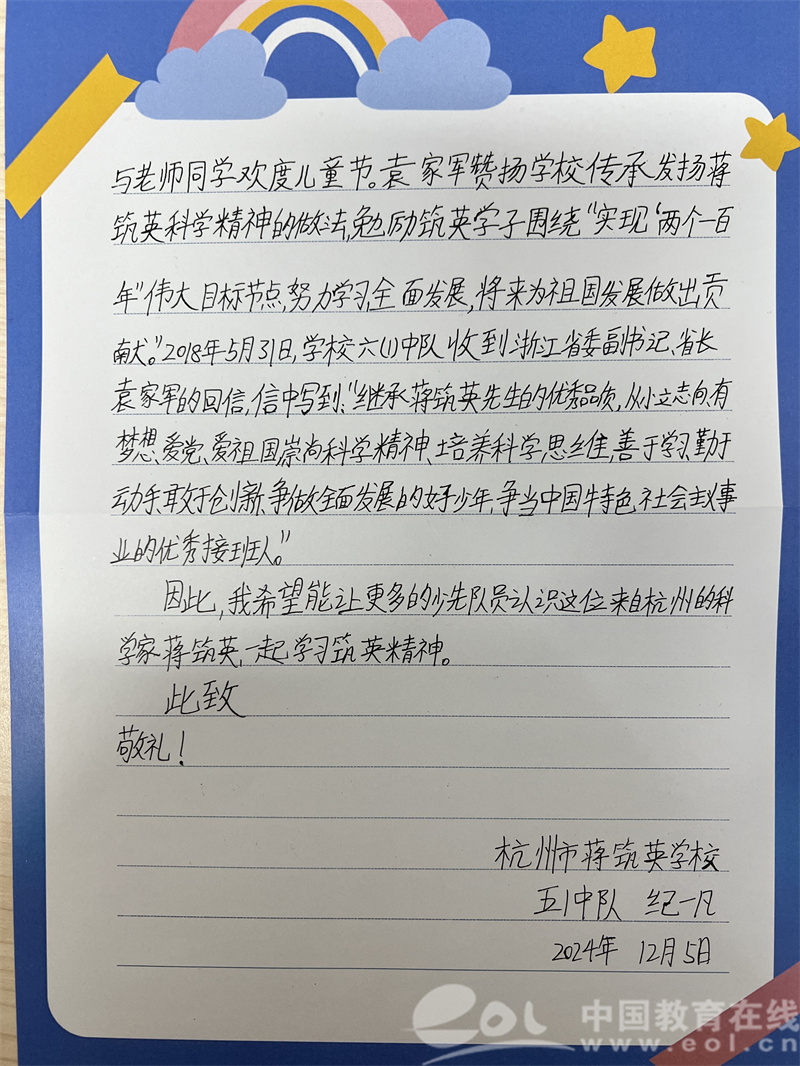 与老师同学欢度儿童节。袁家军赞扬学校传承发扬蒋
筑英科学精神的做法,勉励筑英学子围绕“实现‘两个一百
年’伟大目标节点,努力学习,全面发展,将来为祖国发展做出贡
献。”2018年5月31日,学校六(1)中队收到浙江省委副书记、省长
袁家军的回信,信中写到:“继承蒋筑英先生的优秀品质,从小立志向、有
梦想、爱党、爱祖国,崇尚科学精神、培养科学思维,善于学习、勤于
动手、敢于创新,争做全面发展的好少年,争当中国特色社会主义事
业的优秀接班人。”
因此,我希望能让更多的少先队员认识这位来自杭州的科
学家蒋筑英,一起学习筑英精神。
此致
敬礼!
杭州市蒋筑英学校
五1中队 纪一凡
2024年 12月5日
eol 中国教育在线
www.eol.cn